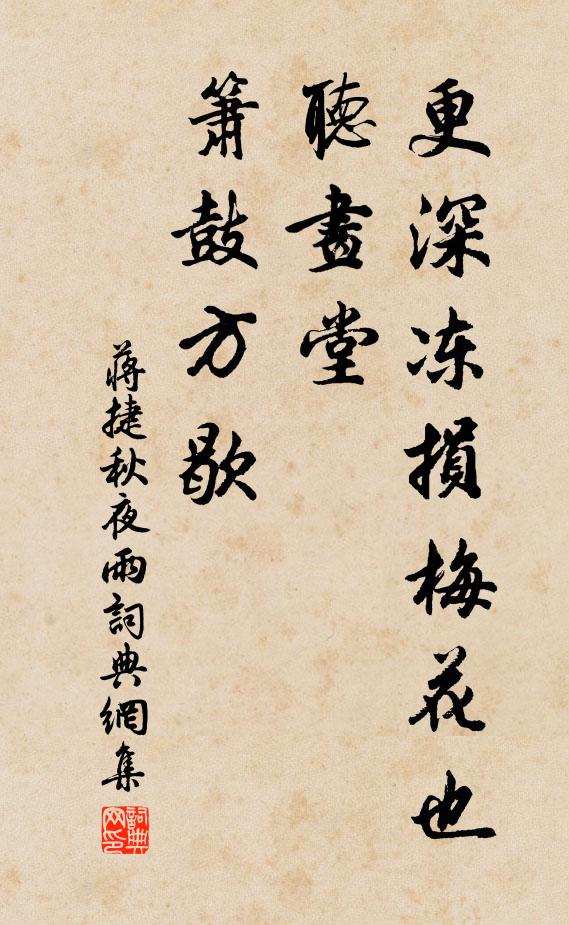 更深冻損梅花也
聽畫堂
簫鼓方歇
蔣捷秋夜雨詞典網集
詞典网印